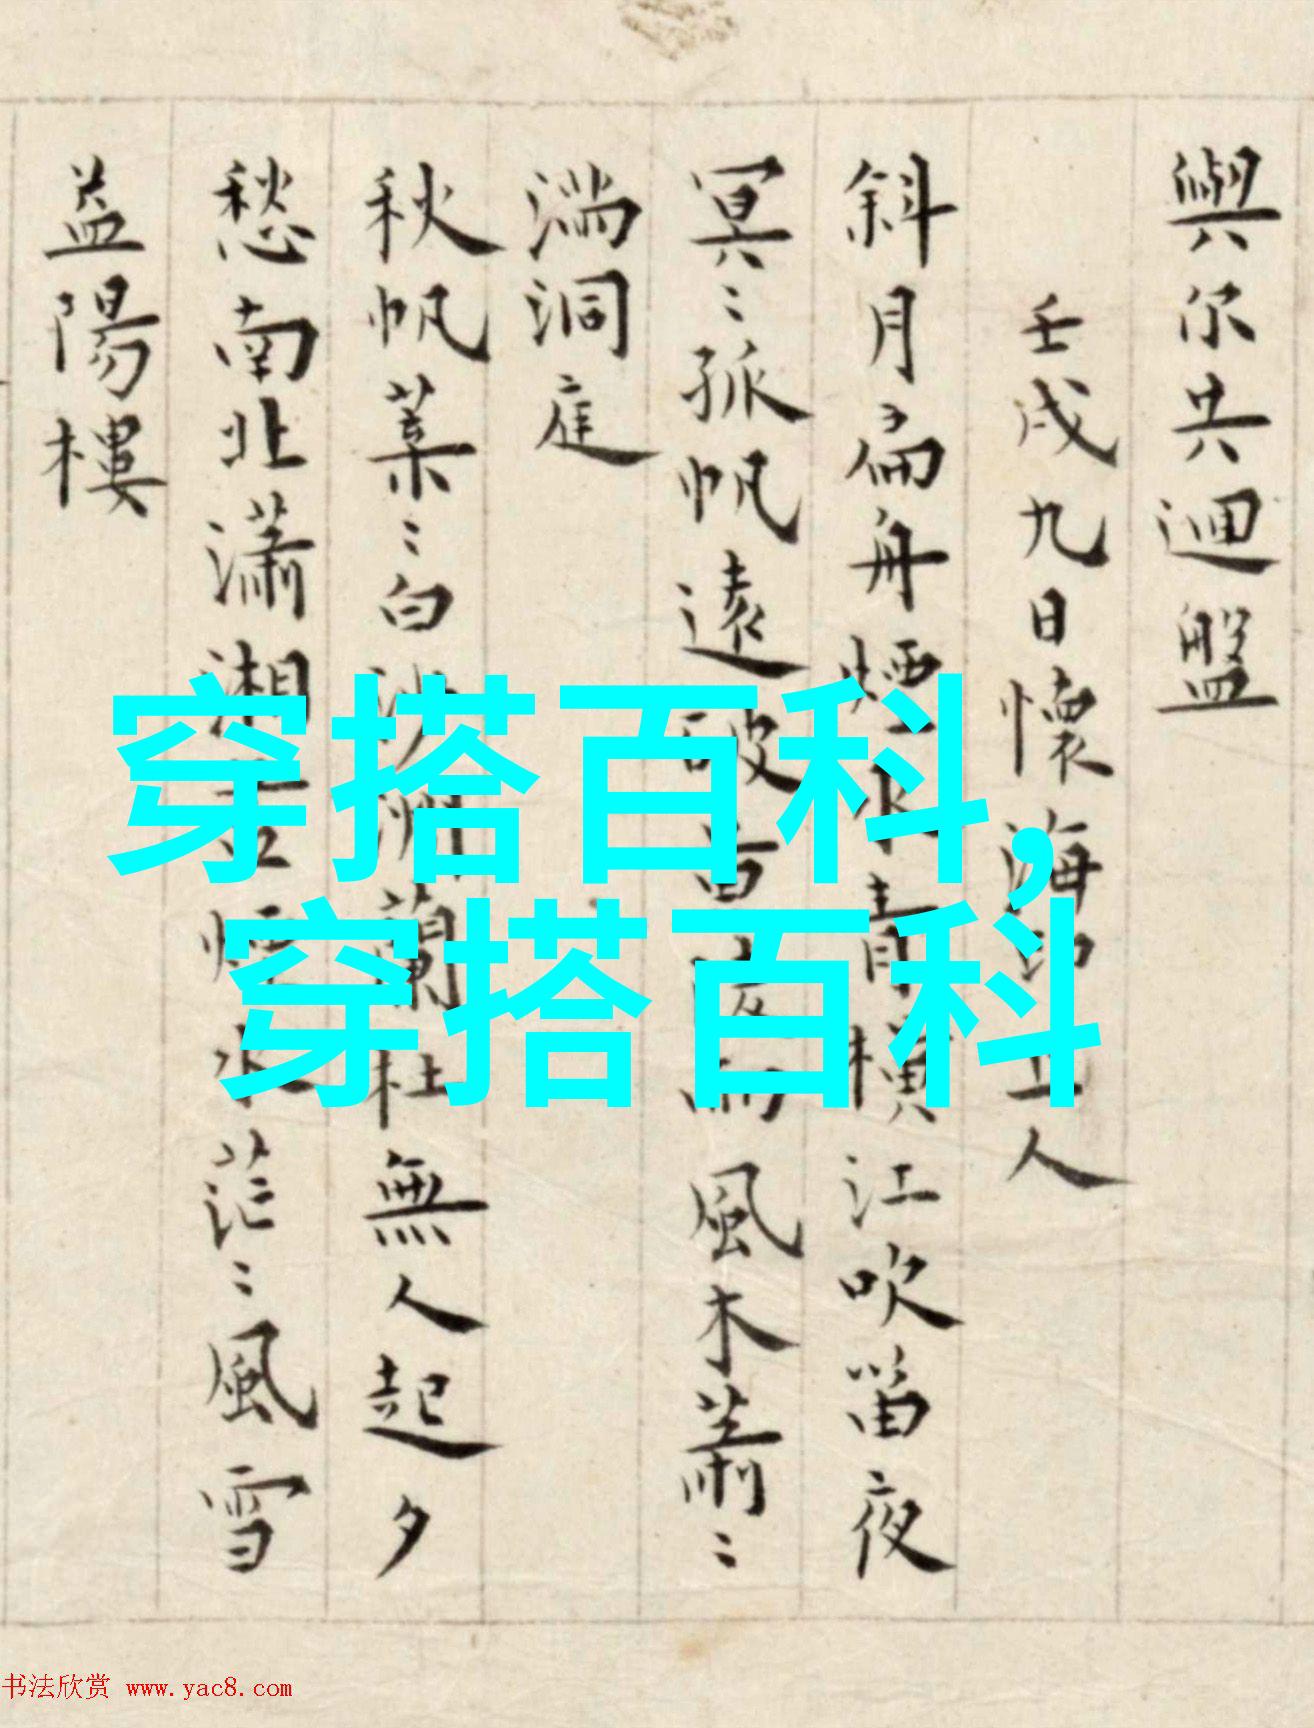 與尔共迴盤
壬戌九日懷海印上人
斜月扁舟煙水青橫江吹笛夜
冥〻孤帆遠破
風木蕭〻
湍洞庭
秋帆葉〻白沙洲蘭杜無人起夕
愁南北瀟湘
水茫〻風雪
益陽樓
穿搭百科,
穿搭百科
书法欣赏 www.yac8.com